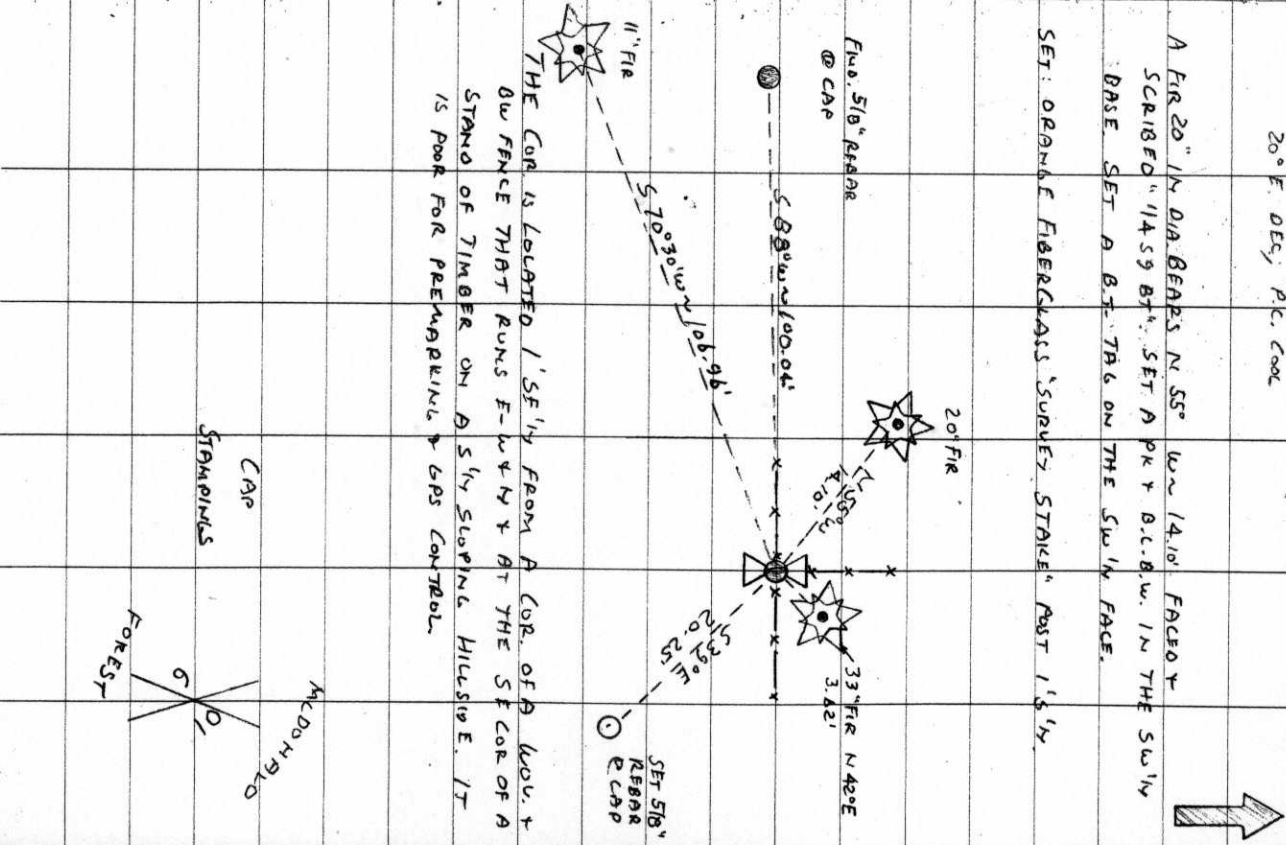 20° E. DEC, P.C. COOL
A FIR 20" IN DIA BEARS N 55° W ~ 14.10'. FACED &
SCRIBED "1459 BT". SET A PK & B.C.B.W. IN THE SW'LY
BASE. SET A B.T. TAG ON THE SW'LY FACE.
SET: ORANGE FIBERGLASS "SURVEY STAKE" POST 1' S'LY.
FND. 5/8" REBAR
@ CAP
20" FIR
N 55° W
14.10
33" FIR N 42° E
3.62'
S 88° W ~ 100.04'
11" FIR
S 70°30' W ~ 106.96'
S 39° E
20.25
SET 5/8"
REBAR
@ CAP
THE COR IS LOCATED 1' SE'LY FROM A COR. OF A WOV. &
BW FENCE THAT RUNS E-W & N & AT THE SE COR OF A
STAND OF TIMBER ON A S'LY SLOPING HILLSIDE. IT
IS POOR FOR PREMARKING & GPS CONTROL.
CAP
STAMPINGS
MCDONALD
6
10
FOREST